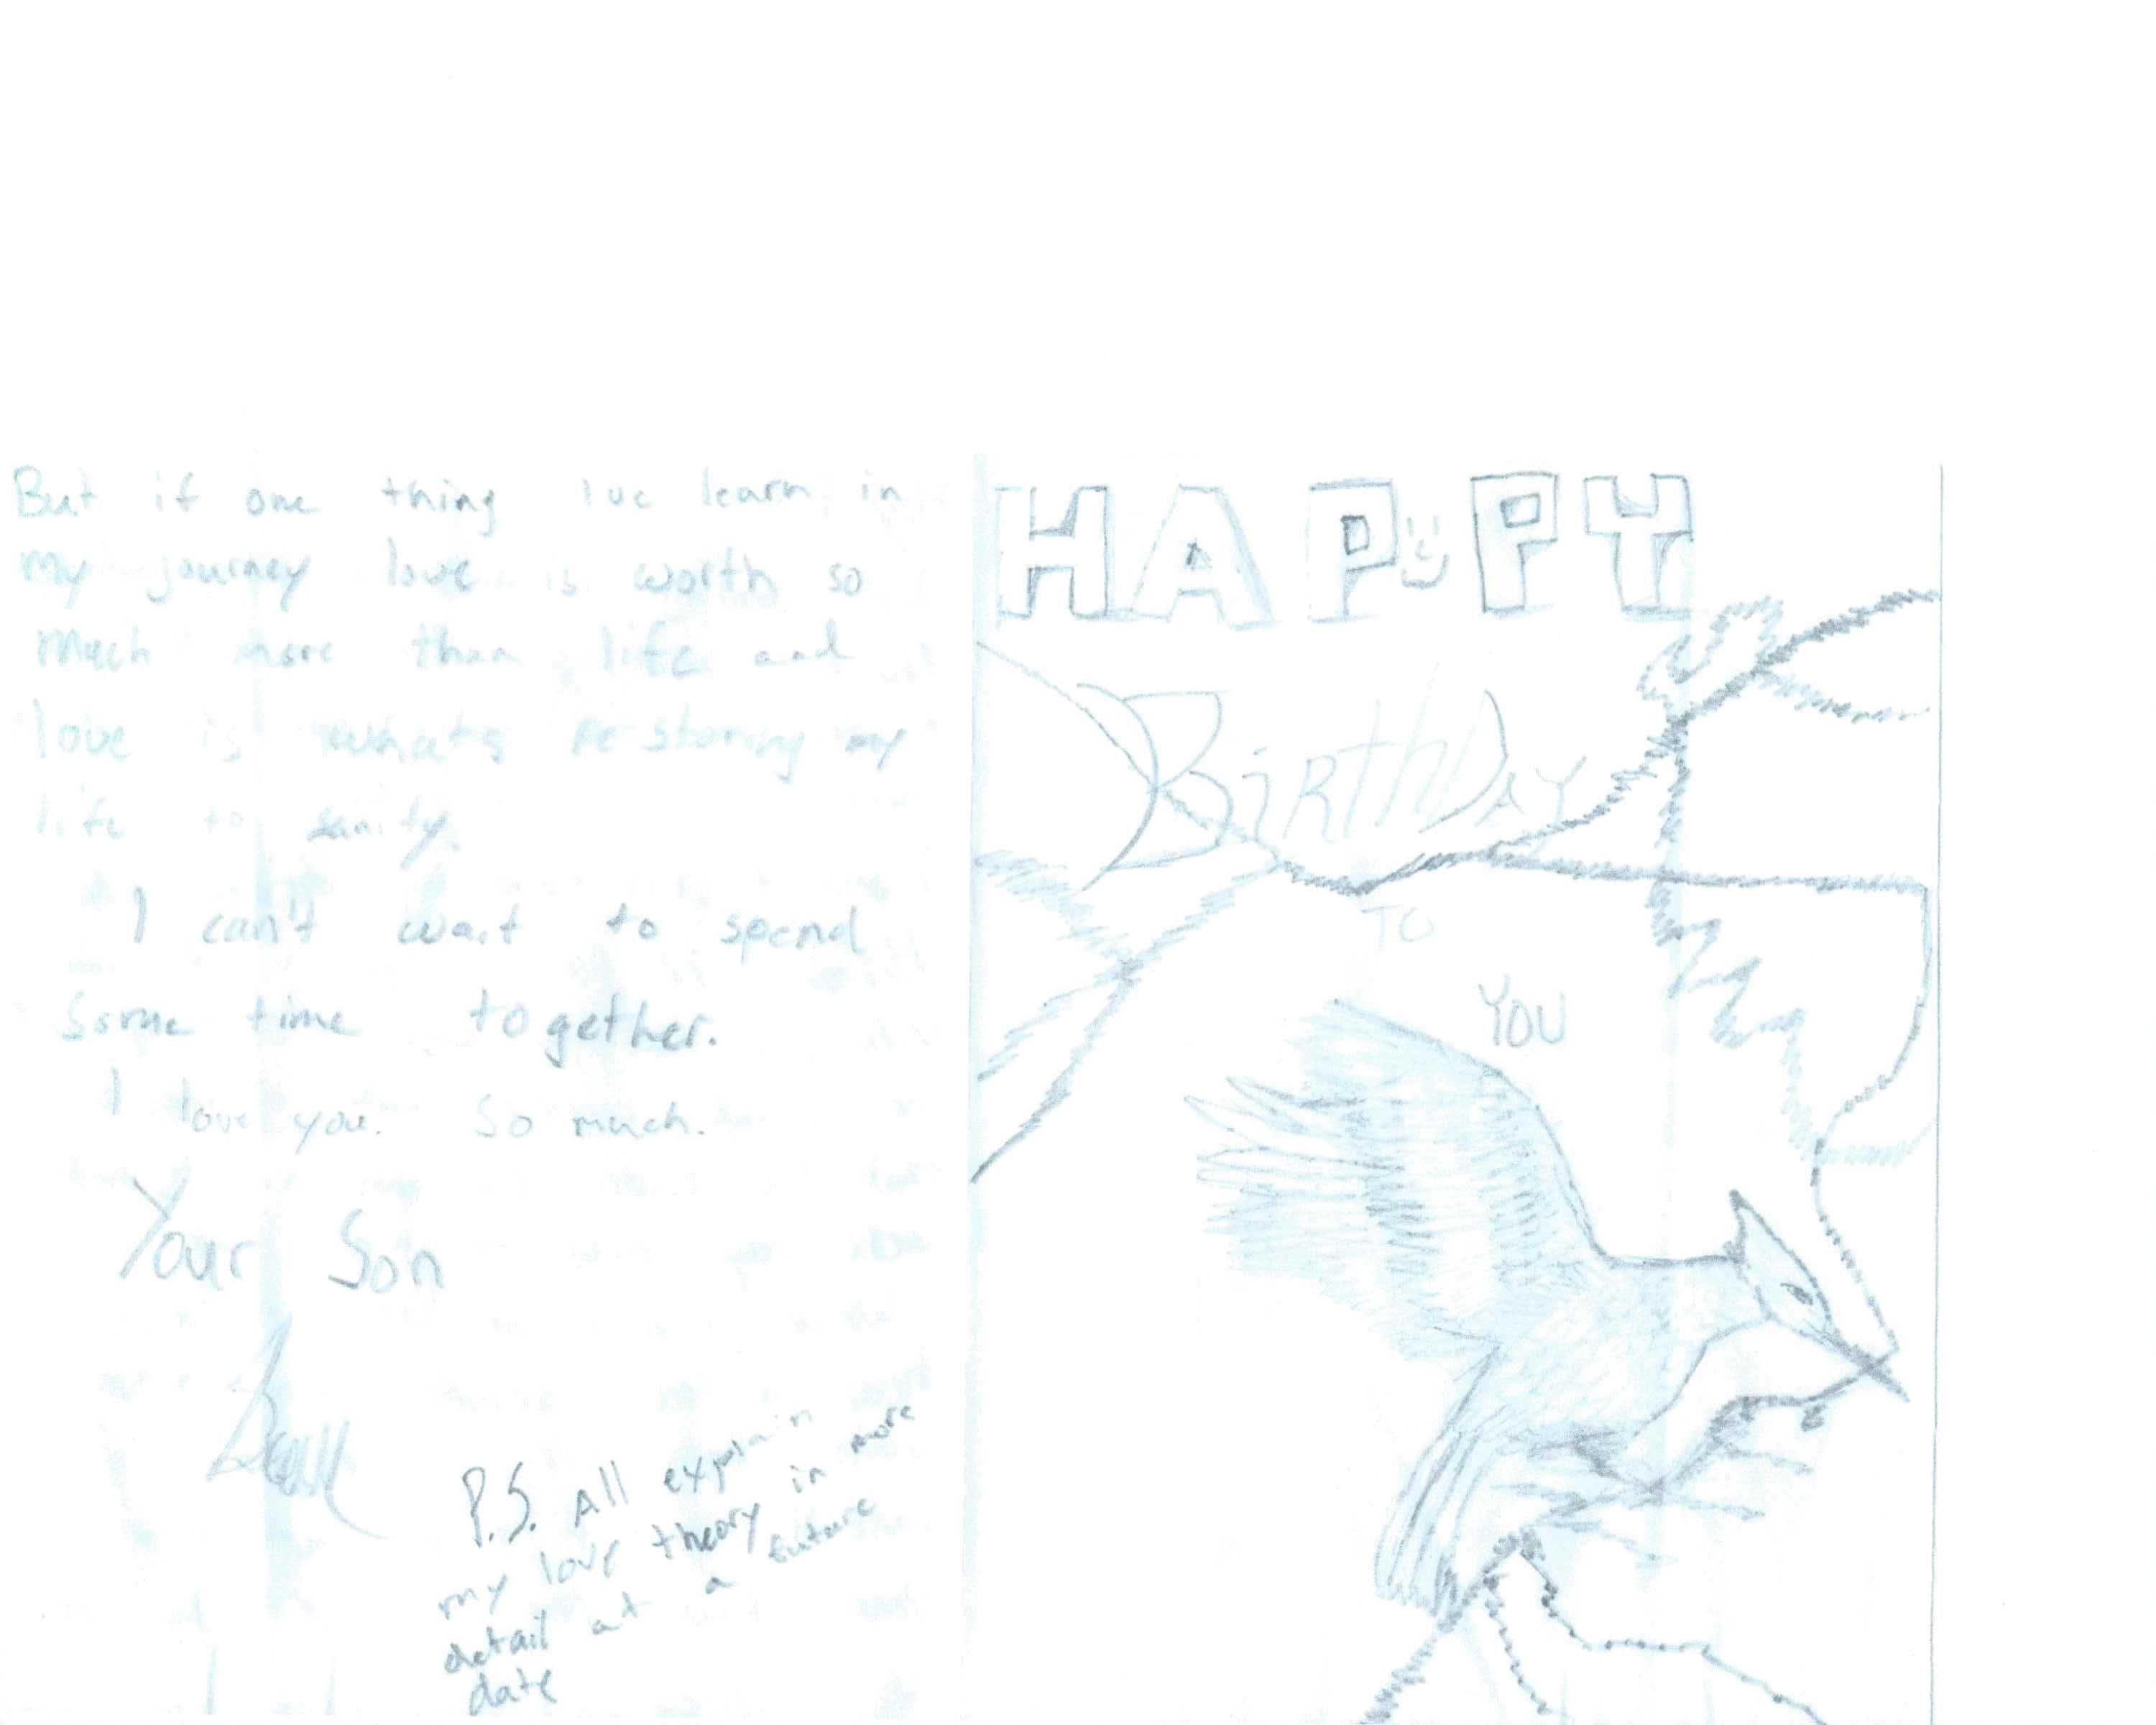 But if one thing Ive learn in
my journey love is worth so
much more than life and
love is whats restoring my
life to sanity.
I can't wait to spend
some time together.
I love you. So much.
Your Son
P.S. All explain
my love theory in more
detail at a future
date
HAPPY
BirthDAY
TO
YOU